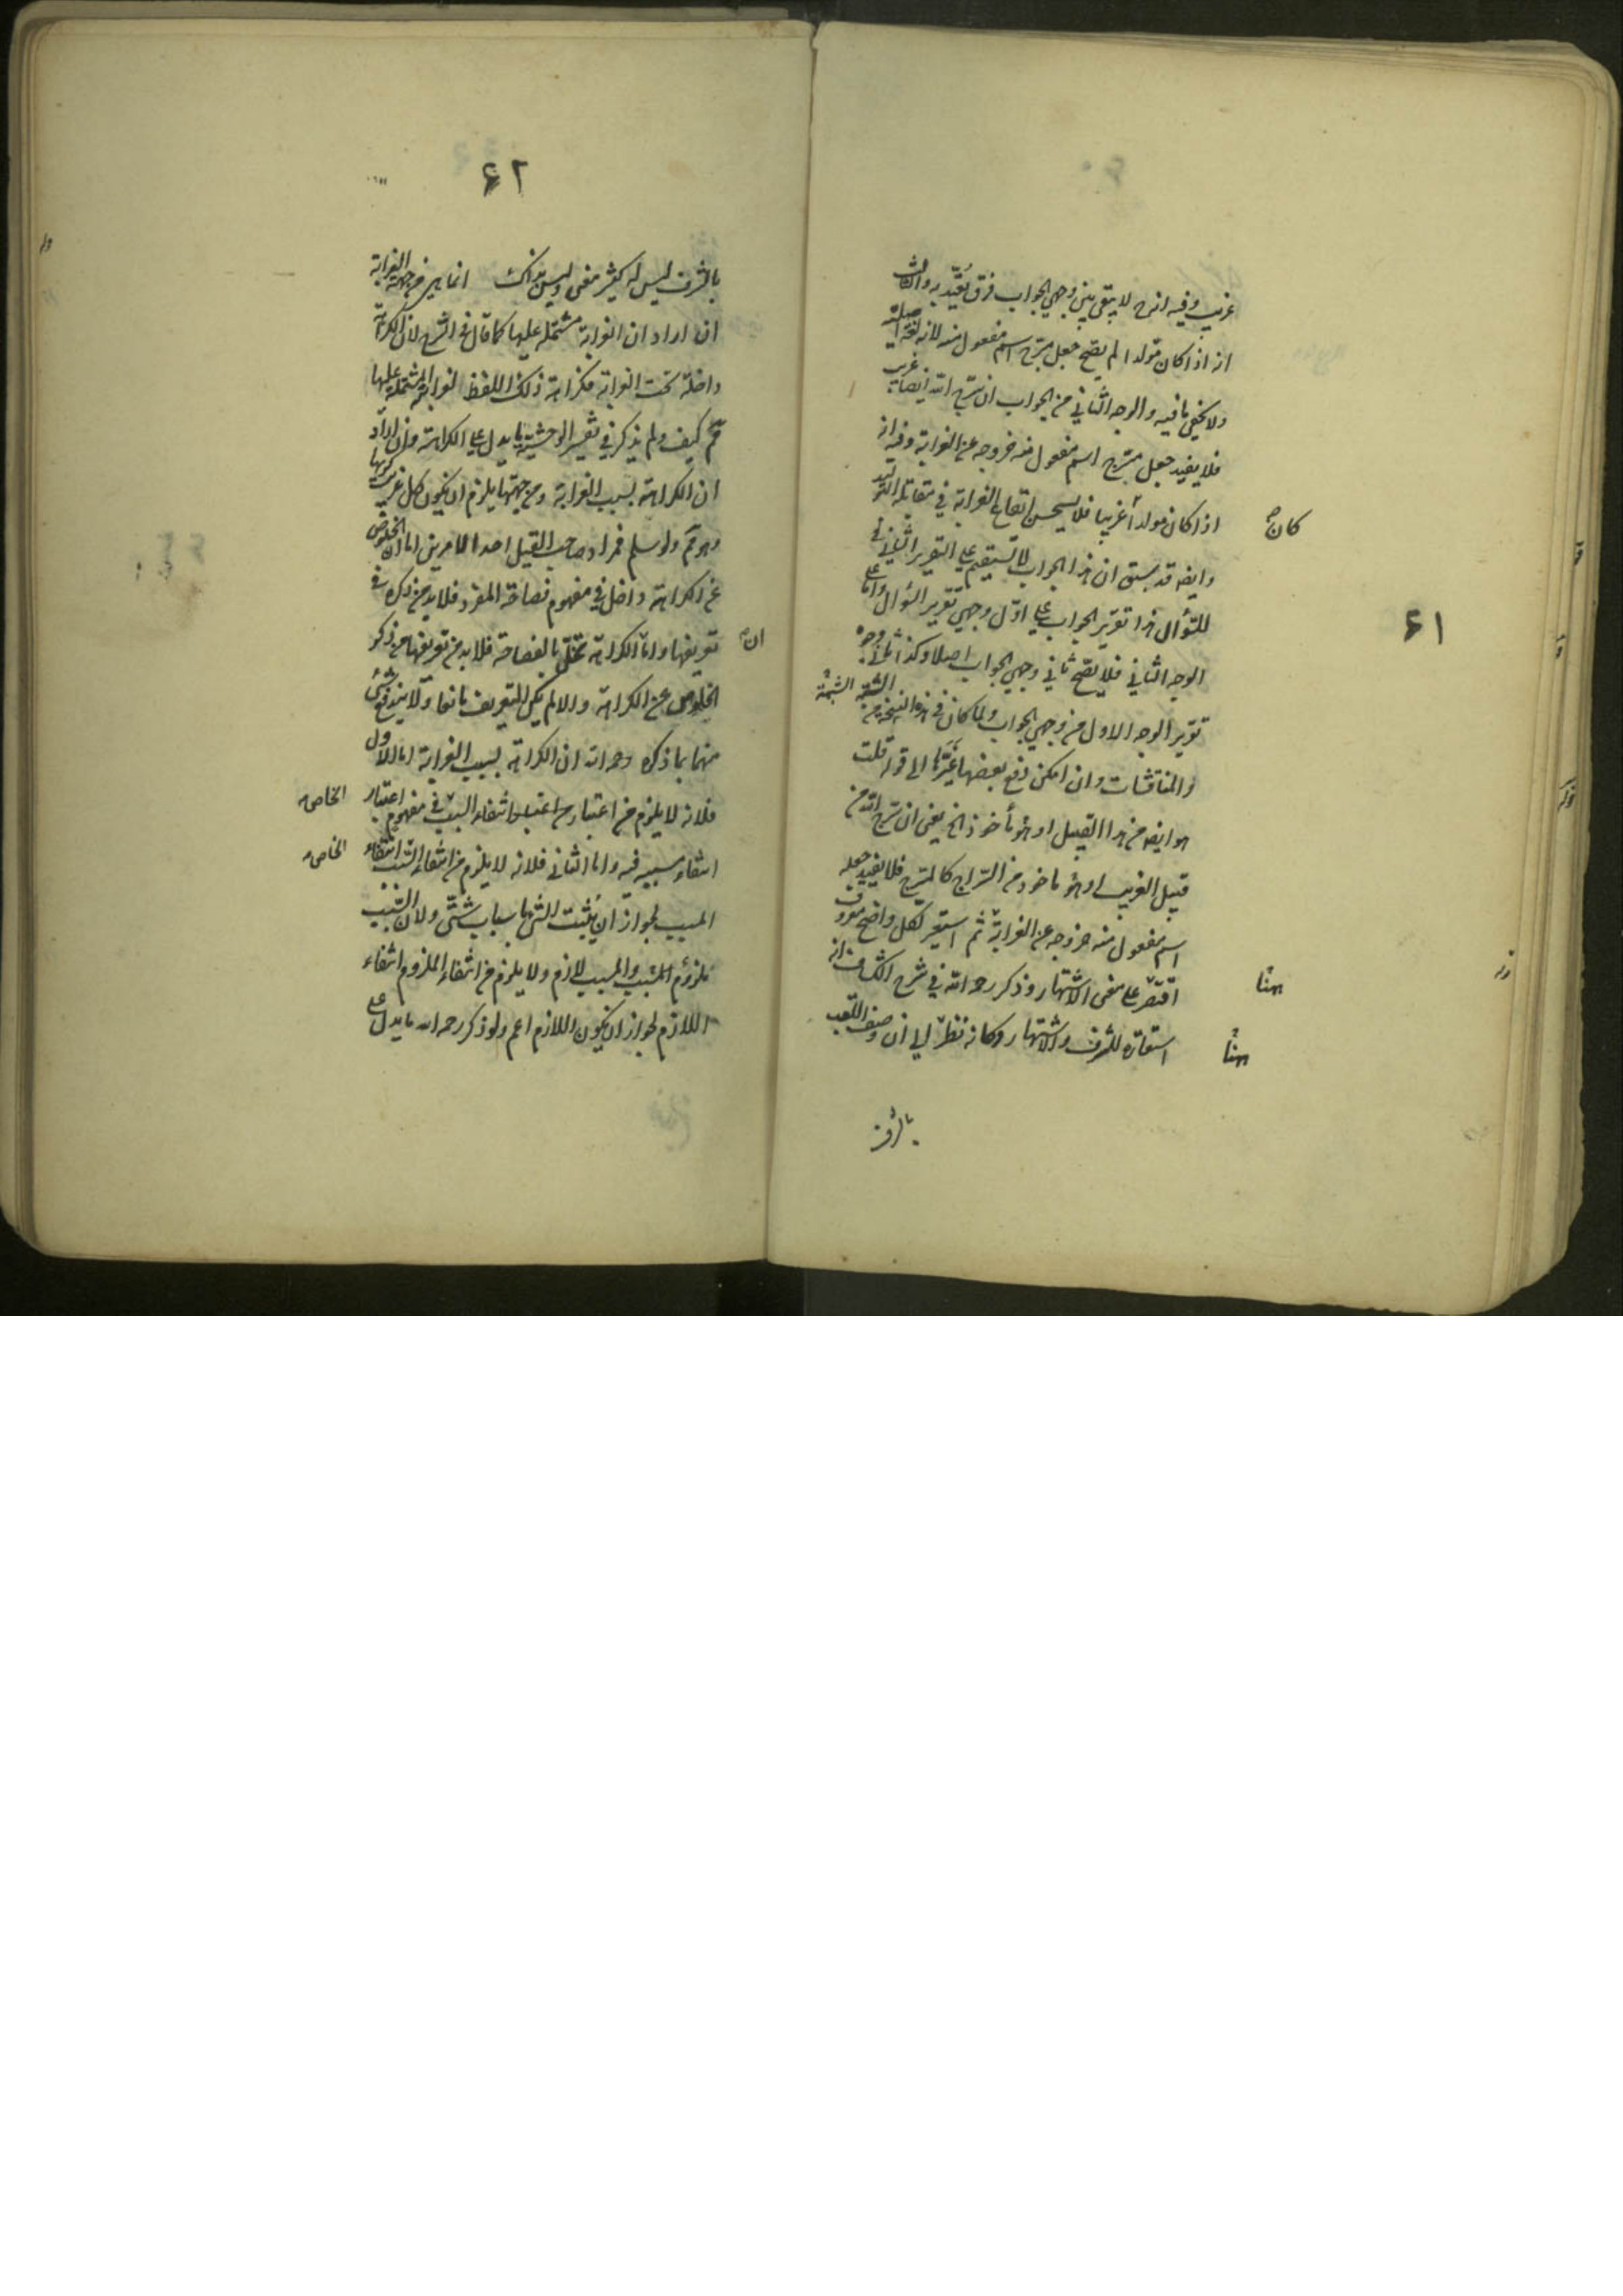 ٦١
غريب وفيه انه ح لا يبقى بين وجهي الجواب فرق يعتد به والثالث
انه اذا كان مولدا لم يصح جعل مسرج اسم مفعول منه لانه لغة اصلية
ولا يخفى ما فيه والوجه الثاني من الجواب ان سرج الله ايضا غريب
فلا يفيد جعل مسرج اسم مفعول منه خروجه عن الغرابة وفيه انه
اذا كان مولدا غريبا فلا يحسن ايقاع الغرابة في مقابلة التوليد
كان
وايضا قد سبق ان هذا الجواب لا يستقيم على التقرير الثاني
للسؤال هذا تقرير الجواب على اول وجهي تقرير السؤال واما على
الوجه الثاني فلا يصح ثاني وجهي الجواب اصلا وكذا ثاني وجوه
تقرير الوجه الاول من وجهي الجواب ولما كان في هذه النسخة من
والمناقشات وان امكن دفع بعضها غيرها الى قوله قلت
هو ايضا من هذا القبيل او هو مأخوذ الخ يعني ان سرج الله من
قبيل الغريب او هو ماخوذ من السراج كالمسرج فلا يفيد جعله
اسم مفعول منه خروجه عن الغرابة ثم استعير لكل واضح معروف
اقتصر على معنى الاشتهار وذكر رحمه الله في شرح الكشاف انه
هنا
استعارة للشرف والاشتهار وكانه نظر الى ان وصف اللقب
هنا
بالشرف
٦٢
بالشرف ليس له كثير معنى وليس بذاك انما هي من جهة الغرابة
ان اراد ان الغرابة مشتملة عليها كما قال في الشرح لان الكراهة
داخلة تحت الغرابة فكراهة ذلك اللفظ لغرابته المشتملة عليها
فمم كيف ولم يذكر في تفسير الوحشية ما يدل على الكراهة وان اراد
ان الكراهة بسبب الغرابة ومن جهتها يلزم ان يكون كل غريب كريها
وهو مم ولو سلم فمراد صاحب القيل احد الامرين اما ان الخلوص
عن الكراهة داخل في مفهوم فصاحة المفرد فلا بد من ذكره في
تعريفها واما ان الكراهة تخل بالفصاحة فلا بد في تعريفها من ذكر
الخلوص عن الكراهة والا لم يكن التعريف مانعا ولا يندفع شئ
منهما بما ذكره رحمه الله ان الكراهة بسبب الغرابة اما الاول
فلانه لا يلزم من اعتبار انتفاء السبب في مفهوم اعتبار
الخاص
انتفاء مسببه فيه واما الثاني فلانه لا يلزم من انتفاء السبب انتفاء
الخاص
المسبب لجواز ان يثبت الشئ باسباب شتى ولان السبب
ملزوم المسبب والمسبب لازم ولا يلزم من انتفاء الملزوم انتفاء
اللازم لجواز ان يكون اللازم اعم ولو ذكر رحمه الله ما يدل على